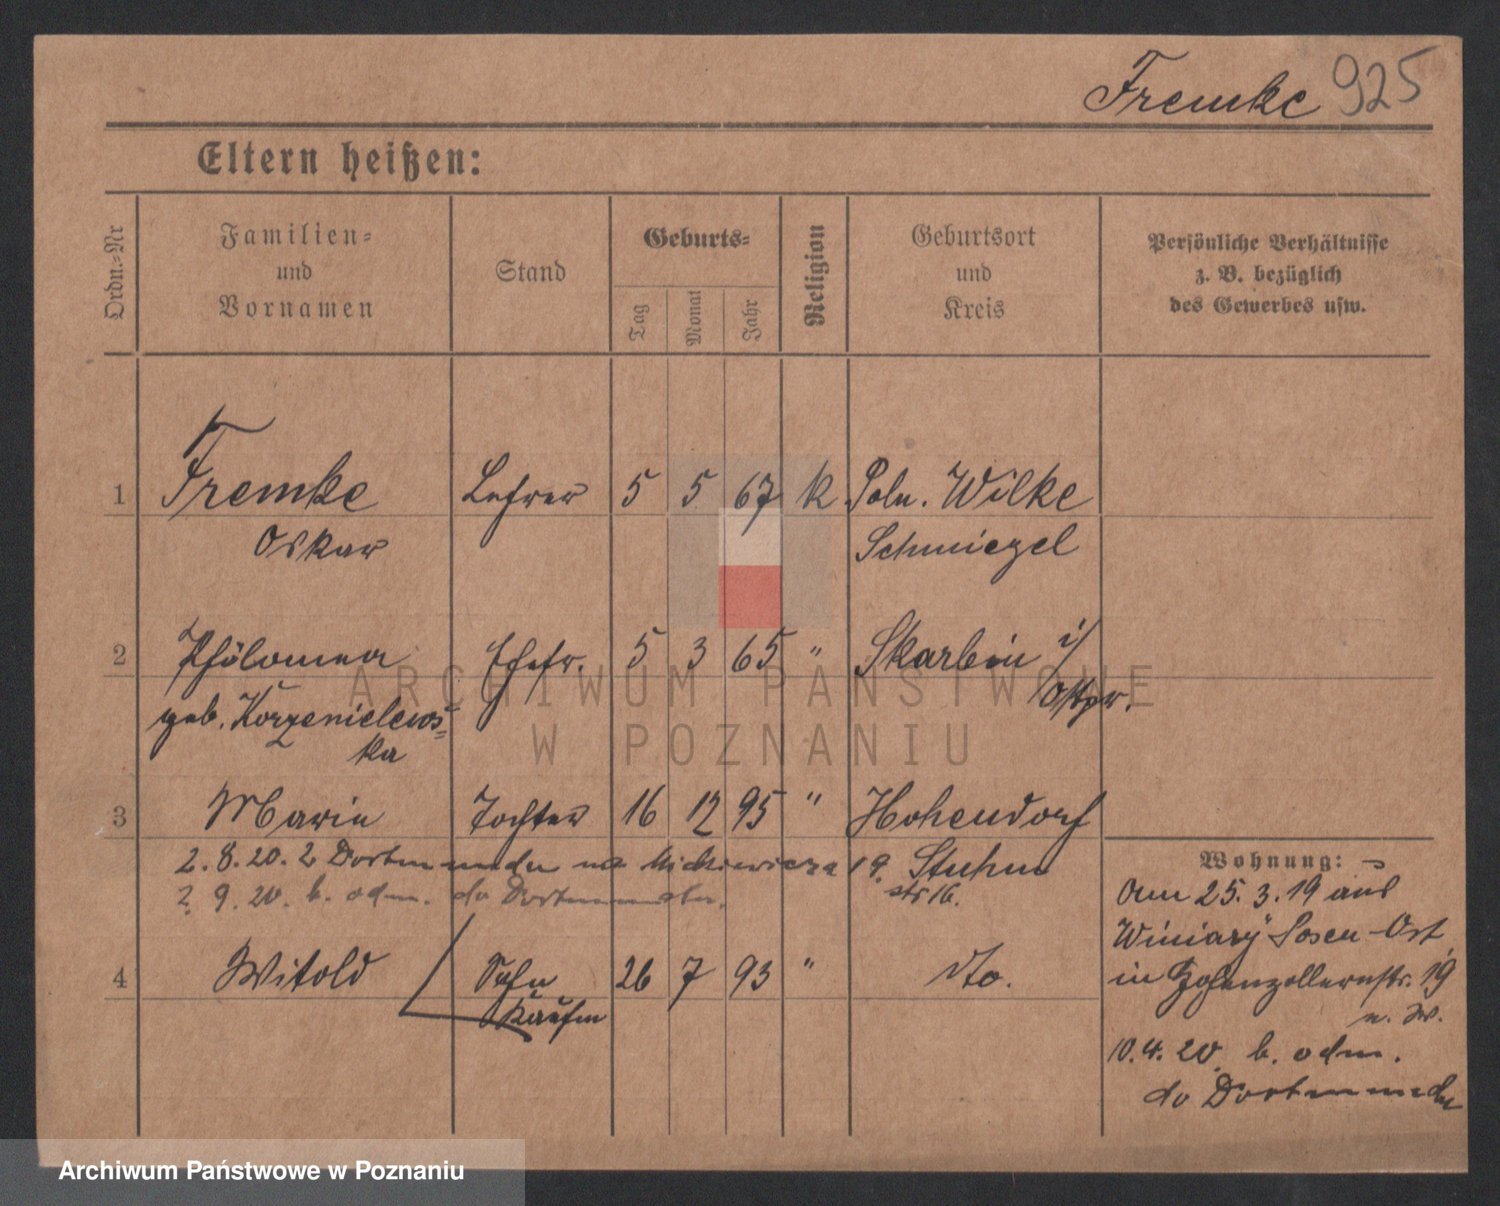 Fremke 925
Eltern heißen:
Ordn.=Nr
Familien=
und
Vornamen
Stand
Geburts=
Tag
Monat
Jahr
Religion
Geburtsort
und
Kreis
Persönliche Verhältnisse
z. B. bezüglich
des Gewerbes usw.
1 Fremke Lehrer 5 5 67 k Poln. Wilke
Oskar Schmiegel
2 Philomena Ehefr. 5 3 65 " Skarbin i/
Ostpr.
geb. Korzenielews=
ka
3 Marie Tochter 16 12 95 " Hohendorf
2.8.20. z Dortmundu na Mickiewicza 19. Stuhm
2. 9. 20. b. odm. do Dortmundu. str 16.
4 Witold Sohn 26 7 93 " dto.
Kaufm
Wohnung:
Am 25.3.19 aus
Winiary Posen-Ost
in Hohenzollernstr. 19
10.4.20 b. odm.
do Dortmundu
ARCHIWUM PAŃSTWOWE
W POZNANIU
Archiwum Państwowe w Poznaniu